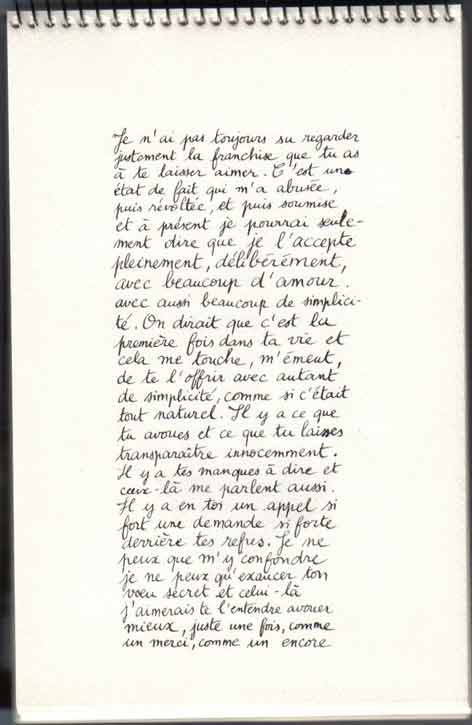 Je n'ai pas toujours su regarder
justement la franchise que tu as
à te laisser aimer. C'est un
état de fait qui m'a abusée,
puis révoltée, et puis soumise
et à présent je pourrai seule-
ment dire que je l'accepte
pleinement, délibérément,
avec beaucoup d'amour.
avec aussi beaucoup de simplici-
té. On dirait que c'est la
première fois dans ta vie et
cela me touche, m'émeut,
de te l'offrir avec autant
de simplicité, comme si c'était
tout naturel. Il y a ce que
tu avoues et ce que tu laisses
transparaître innocemment.
Il y a tes manques à dire et
ceux-là me parlent aussi.
Il y a en toi un appel si
fort une demande si forte
derrière tes refus. Je ne
peux que m'y confondre
je ne peux qu'exaucer ton
vœu secret et celui-là
j'aimerais te l'entendre avouer
mieux, juste une fois, comme
un merci, comme un encore